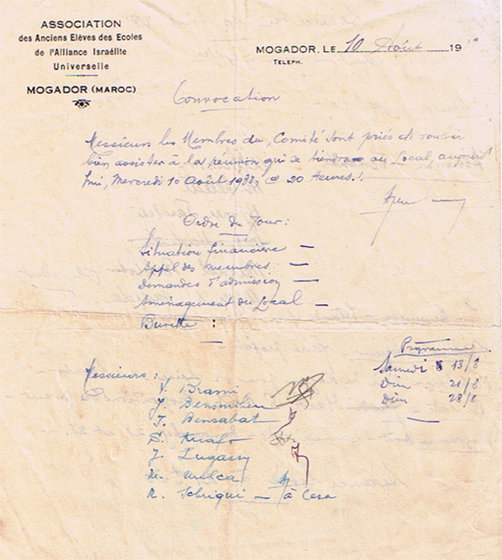 ASSOCIATION
des Anciens Elèves des Ecoles
de l'Alliance Israélite
Universelle
MOGADOR (MAROC)
MOGADOR, LE 10 Août 19
TELEPH.
Convocation
Messieurs les Membres du Comité sont priés de vouloir
bien assister à la reunion qui se tiendra au Local aujourd'
hui, Mercredi 10 Août 1938, à 20 heures.
Ordre du Jour:
Situation financière —
Appel des membres —
Demandes d'admission —
Aménagement du Local —
Buvette :
Programme
Samedi 13/8
Dim 21/8
Dim 28/8
Messieurs :
Brami
J. Bensmihen
J. Bensabat
S. Knafo
J. Lugassy
M. Mulca
R. Sebriqui — à Casa